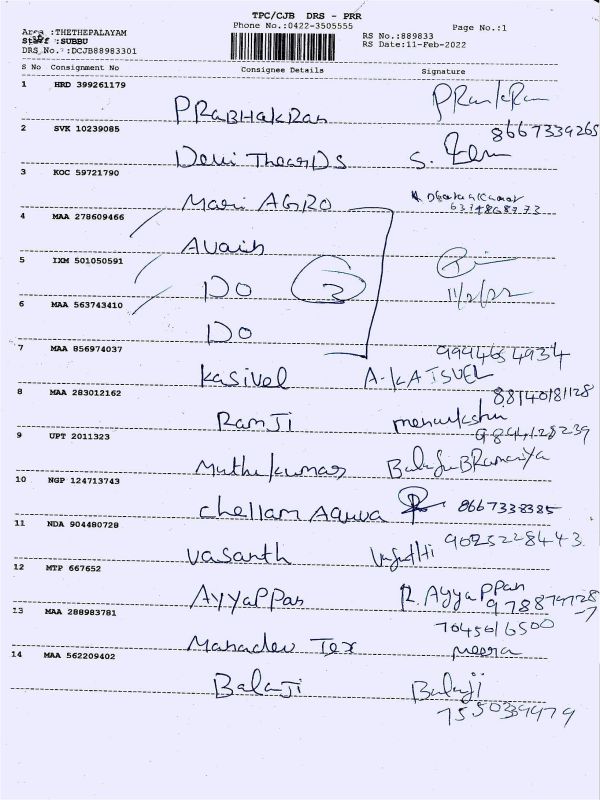 TPC/CJB DRS - PRR
Area :THETHEPALAYAM Phone No.:0422-3505555 Page No.:1
Staff :SUBBU RS No.:889833
DRS No. :DCJB88983301 RS Date:11-Feb-2022
S No Consignment No Consignee Details Signature
1 HRD 399261179
PRaBHAkRan
2 SVK 10239085 8667339265
S.
3 KOC 59721790
Mari AGRO
4 MAA 278609466
5 IXM 501050591
DO 3
6 MAA 563743410 11/2/22
DO
7 MAA 856974037 9994654934
Kasivel
8 MAA 283012162
RamJi
9 UPT 2011323 9841128239
Muthukumar
10 NGP 124713743
chellam Aquva 8667338385
11 NDA 904480728 9025228443
Vasanth
12 MTP 667652
AyyaPPan R. AyyaPPan
13 MAA 288983781 7045016500
Mahadev Tex meera
14 MAA 562209402
BalaJi Balaji